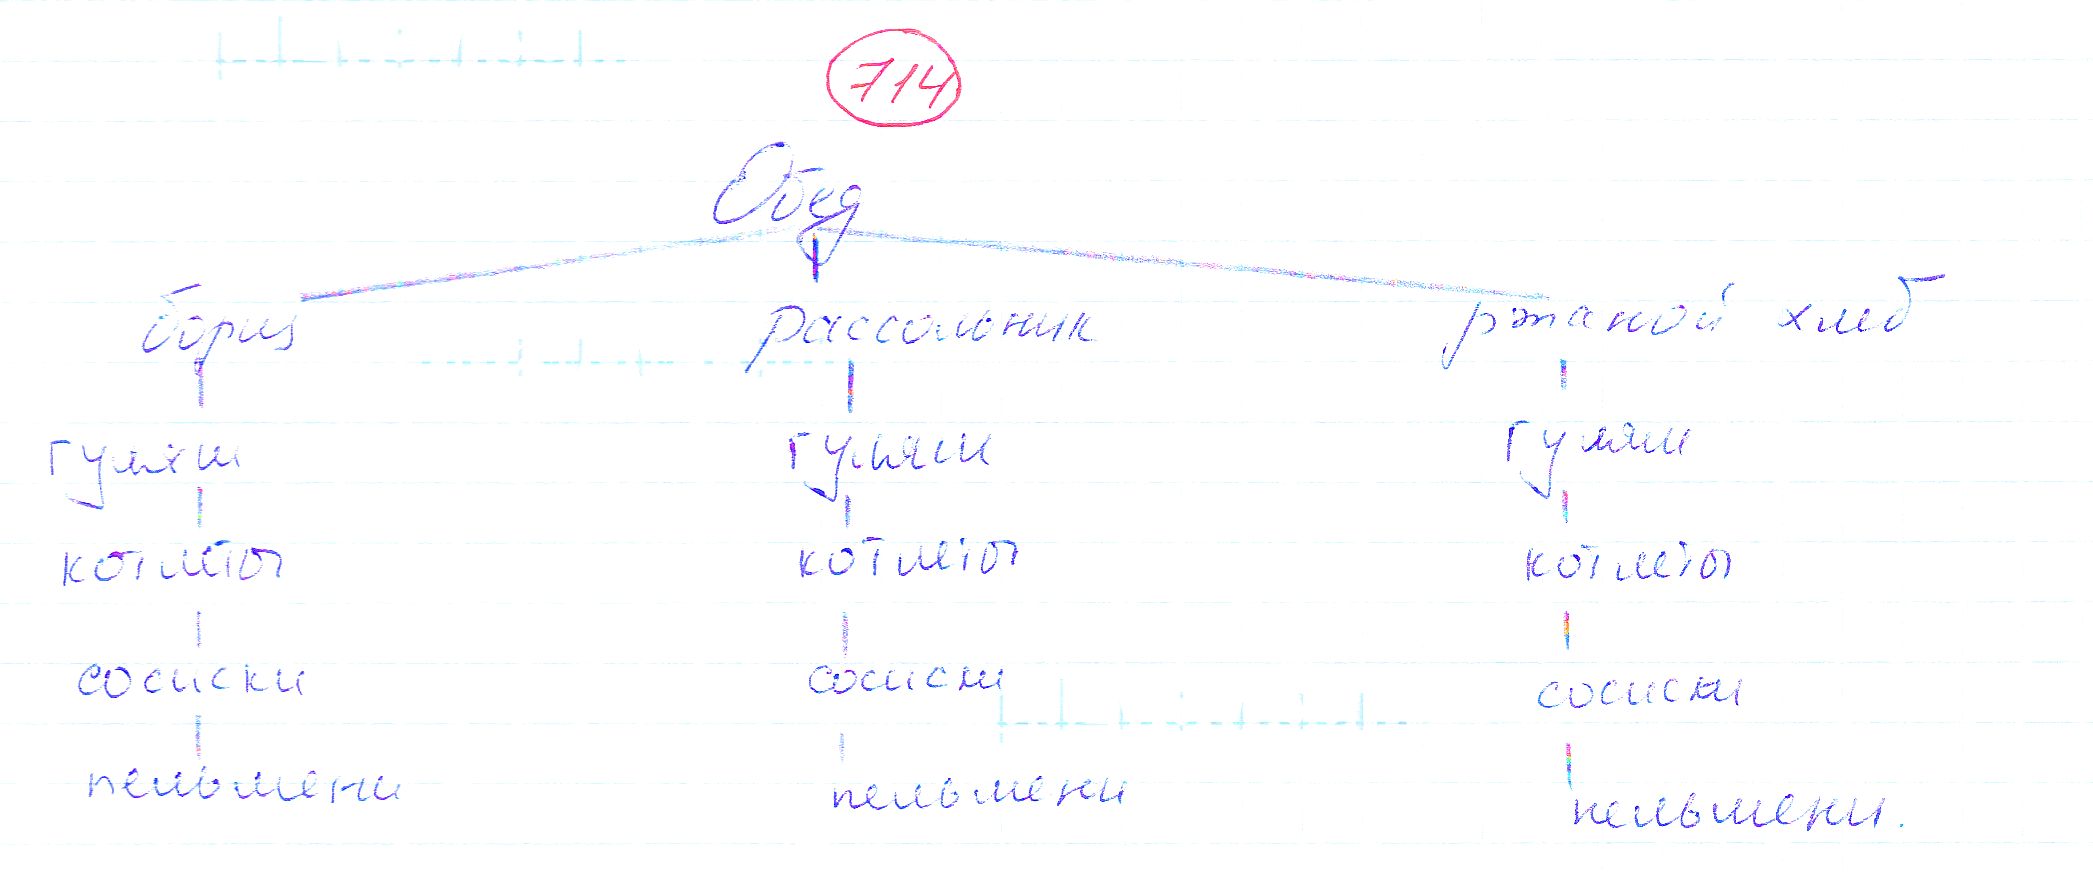 714
Обед
борщ рассольник ржаной хлеб
гуляш гуляш гуляш
котлеты котлеты котлеты
сосиски сосиски сосиски
пельмени пельмени пельмени.